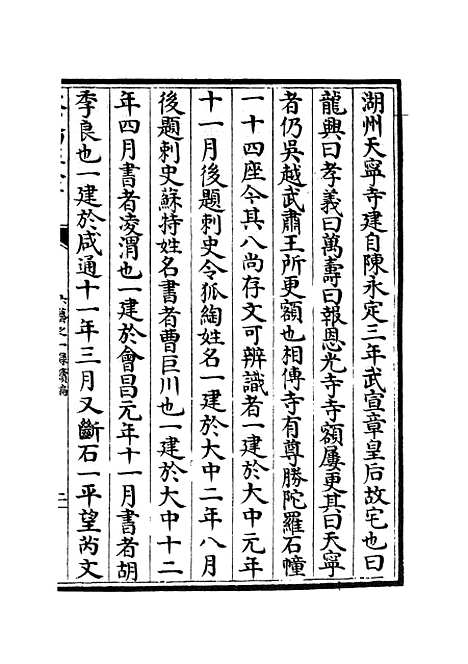 湖州天寧寺建自陳永定三年武宣章皇后故宅也曰
龍興曰孝義曰萬壽曰報恩光寺寺額屢更其曰天寧
者仍吳越武肅王所更額也相傳寺有尊勝陀羅石幢
一十四座今其八尚存文可辨識者一建於大中元年
十一月後題刺史令狐綯姓名一建於大中二年八月
後題刺史蘇特姓名書者曹巨川也一建於大中十二
年四月書者凌渭也一建於會昌元年十一月書者胡
季良也一建於咸通十一年三月又斷石一平望芮文